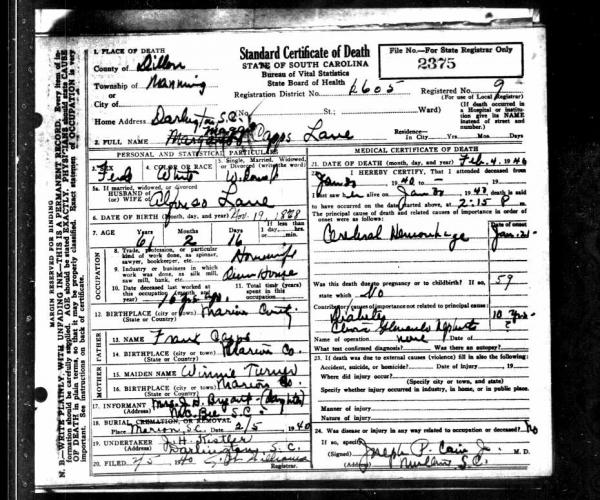 MARGIN RESERVED FOR BINDING
N. B.—WRITE PLAINLY, WITH UNFADING INK—THIS IS A PERMANENT RECORD. Every item of information should be carefully supplied. AGE should be stated EXACTLY. PHYSICIANS should state CAUSE OF DEATH in plain terms, so that it may be properly classified. Exact statement of OCCUPATION is very important. See instructions on back of certificate.
1. PLACE OF DEATH
County of Dillon
Township of Manning
or
City of
Home Address Darlington S.C.
2. FULL NAME Capps Lane
Standard Certificate of Death
STATE OF SOUTH CAROLINA
Bureau of Vital Statistics
State Board of Health
Registration District No. 1605
No. St.; Ward)
File No.—For State Registrar Only
2375
Registered No. 9
(For use of Local Registrar)
(If death occurred in a Hospital or Institution give its NAME instead of street and number.)
Residence—
In City Yrs. Mos. Days
PERSONAL AND STATISTICAL PARTICULARS
3. SEX 4. COLOR OR RACE 5. Single, Married, Widowed, or Divorced (write the word)
White
5a. If married, widowed, or divorced
HUSBAND of
(or) WIFE of Lane
6. DATE OF BIRTH (Month, day, and year) Nov. 19, 1878
7. AGE Years Months Days If less than 1 day, hrs. or min.
61 2 16
OCCUPATION
8. Trade, profession, or particular kind of work done, as spinner, sawyer, bookkeeper, etc. Housewife
9. Industry or business in which work was done, as silk mill, saw mill, bank, etc. Own House
10. Date deceased last worked at this occupation (month and year)
11. Total time (years) spent in this occupation
12. BIRTHPLACE (city or town) Marion County
(State or Country)
FATHER
13. NAME Frank Capps
14. BIRTHPLACE (city or town) Marion Co.
(State or Country)
MOTHER
15. MAIDEN NAME Winnie Turner
16. BIRTHPLACE (city or town) Marion Co.
(State or Country)
17. INFORMANT Mrs. J. H. Bryant (daughter)
(Address) S.C.
18. BURIAL, CREMATION, OR REMOVAL
Place Marion, S.C. Date 2/5 1940
19. UNDERTAKER J. H. Kistler
(Address) Darlington, S.C.
20. FILED 2/5 40 Williams
Registrar.
MEDICAL CERTIFICATE OF DEATH
21. DATE OF DEATH (month, day, and year) Feb. 4, 1940
22. I HEREBY CERTIFY, That I attended deceased from
1940 to 19
I last saw her alive on 1940 death is said
to have occurred on the date stated above, at 2:15 P m.
The principal cause of death and related causes of importance in order of onset were as follows:
Date of onset
Cerebral Hemorrhage Jan.
Was this death due to pregnancy or to childbirth? If so,
state which No 59
Contributory causes of importance not related to principal cause:
Diabetes 10 yrs.
Name of operation none Date of
What test confirmed diagnosis? Was there an autopsy?
23. If death was due to external causes (violence) fill in also the following:
Accident, suicide, or homicide? Date of injury 19
Where did injury occur?
(Specify city or town, and state)
Specify whether injury occurred in industry, in home, or in public place.
Manner of injury
Nature of injury
24. Was disease or injury in any way related to occupation of deceased? No
If so, specify
(Signed) Joseph P. Cain Jr. M. D.
(Address) Mullins S.C.